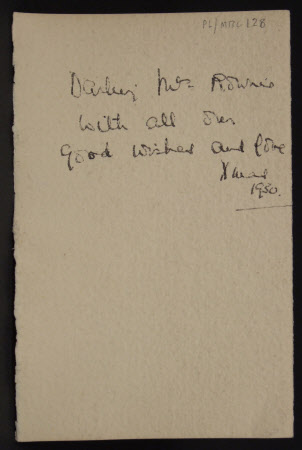 PL/MTC 128
Darling Mrs
with all our
good wishes and love
Xmas
1950.